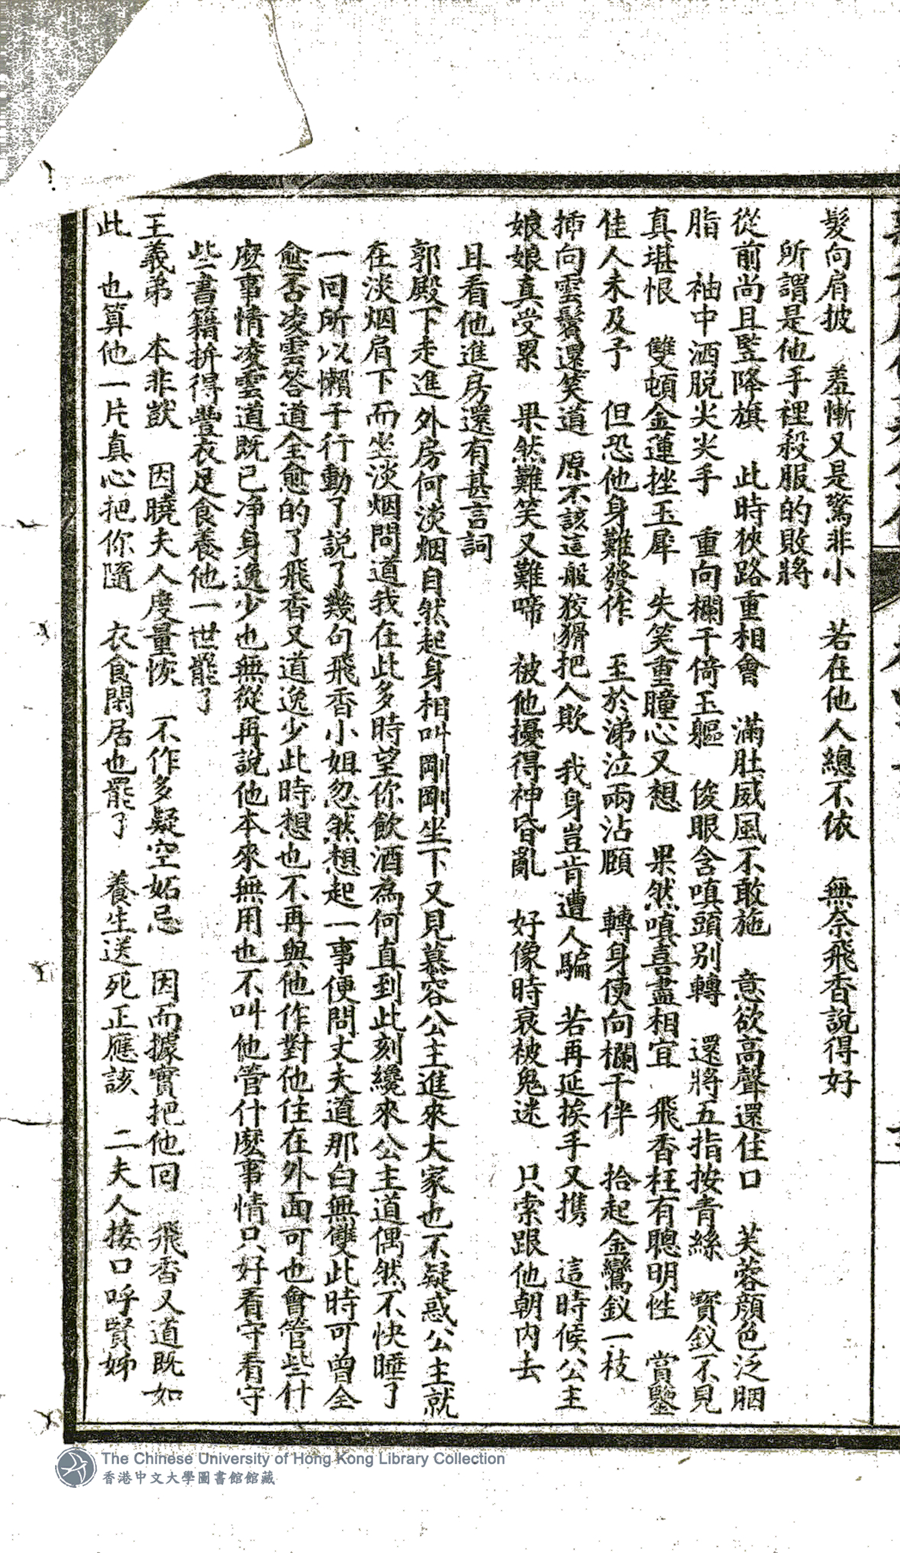 髮向肩披　羞慚又是驚非小　若在他人總不依　無奈飛香說得好
所謂是他手裡殺服的敗將
從前尚且豎降旗　此時狹路重相會　滿肚威風不敢施　意欲高聲還住口　芙蓉顏色泛胭
脂　袖中洒脱尖尖手　重向欄干倚玉軀　俊眼含嗔頭別轉　還將五指按青絲　寶釵不見
真堪恨　雙頓金蓮挫玉犀　失笑重瞳心又想　果然嗔喜盡相宜　飛香枉有聰明性　賞鑒
佳人未及予　但恐他身難發作　至於涕泣兩沾頤　轉身便向欄干伴　拾起金鸞釵一枝
揷向雲鬟還笑道　原不該這般狡猾把人欺　我身豈肯遭人騙　若再延挨手又攜　這時候公主
娘娘真受累　果然難笑又難啼　被他擾得神昏亂　好像時衰被鬼迷　只索跟他朝內去
且看他進房還有甚言詞
郭殿下走進外房何淡烟自然起身相叫剛剛坐下又見慕容公主進來大家也不疑惑公主就
在淡烟肩下而坐淡烟問道我在此多時望你飲酒為何直到此刻纔來公主道偶然不快睡了
一回所以懶于行動了說了幾句飛香小姐忽然想起一事便問丈夫道那白無雙此時可曾全
愈否凌雲答道全愈的了飛香又道逸少此時想也不再與他作對他住在外面可也會管些什
麼事情凌雲道既已净身逸少也無從再說他本來無用也不叫他管什麼事情只好看守看守
些書籍拚得豐衣足食養他一世罷了
王義弟　本非獃　因曉夫人度量恢　不作多疑空妬忌　因而據實把他回　飛香又道既如
此　也算他一片真心把你隨　衣食閑居也罷了　養生送死正應該　二夫人接口呼賢姊
The Chinese University of Hong Kong Library Collection
香港中文大學圖書館館藏